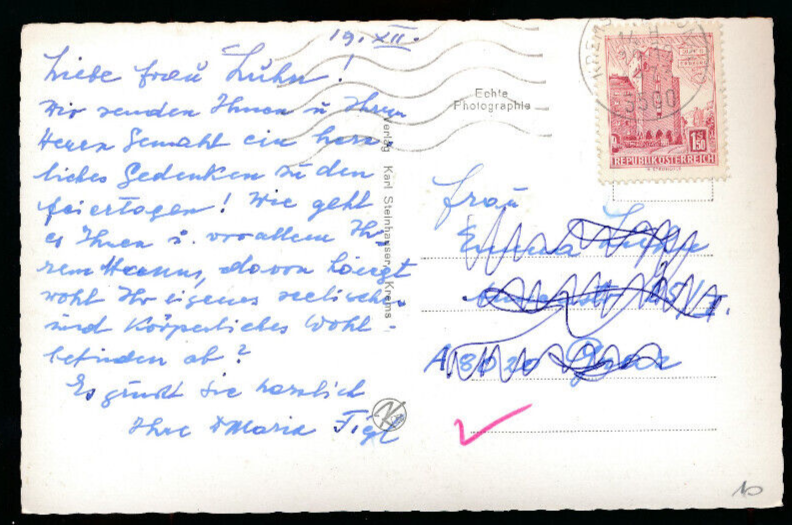 19. XII.
Liebe Frau Luhn!
Wir senden Ihnen u Ihrem
Herrn Gemahl ein herz-
liches Gedenken zu den
Feiertagen! Wie geht
es Ihnen u. vor allem Ih-
rem Herrn, davon hängt
wohl Ihr eigenes seelisches
und körperliches Wohl-
befinden ab?
Es grüsst Sie herzlich
Ihre Maria Figl
Verlag Karl Steinhauser, Krems
Echte
Photographie
3500
1.50
REPUBLIK ÖSTERREICH
Frau
A 8020 Graz